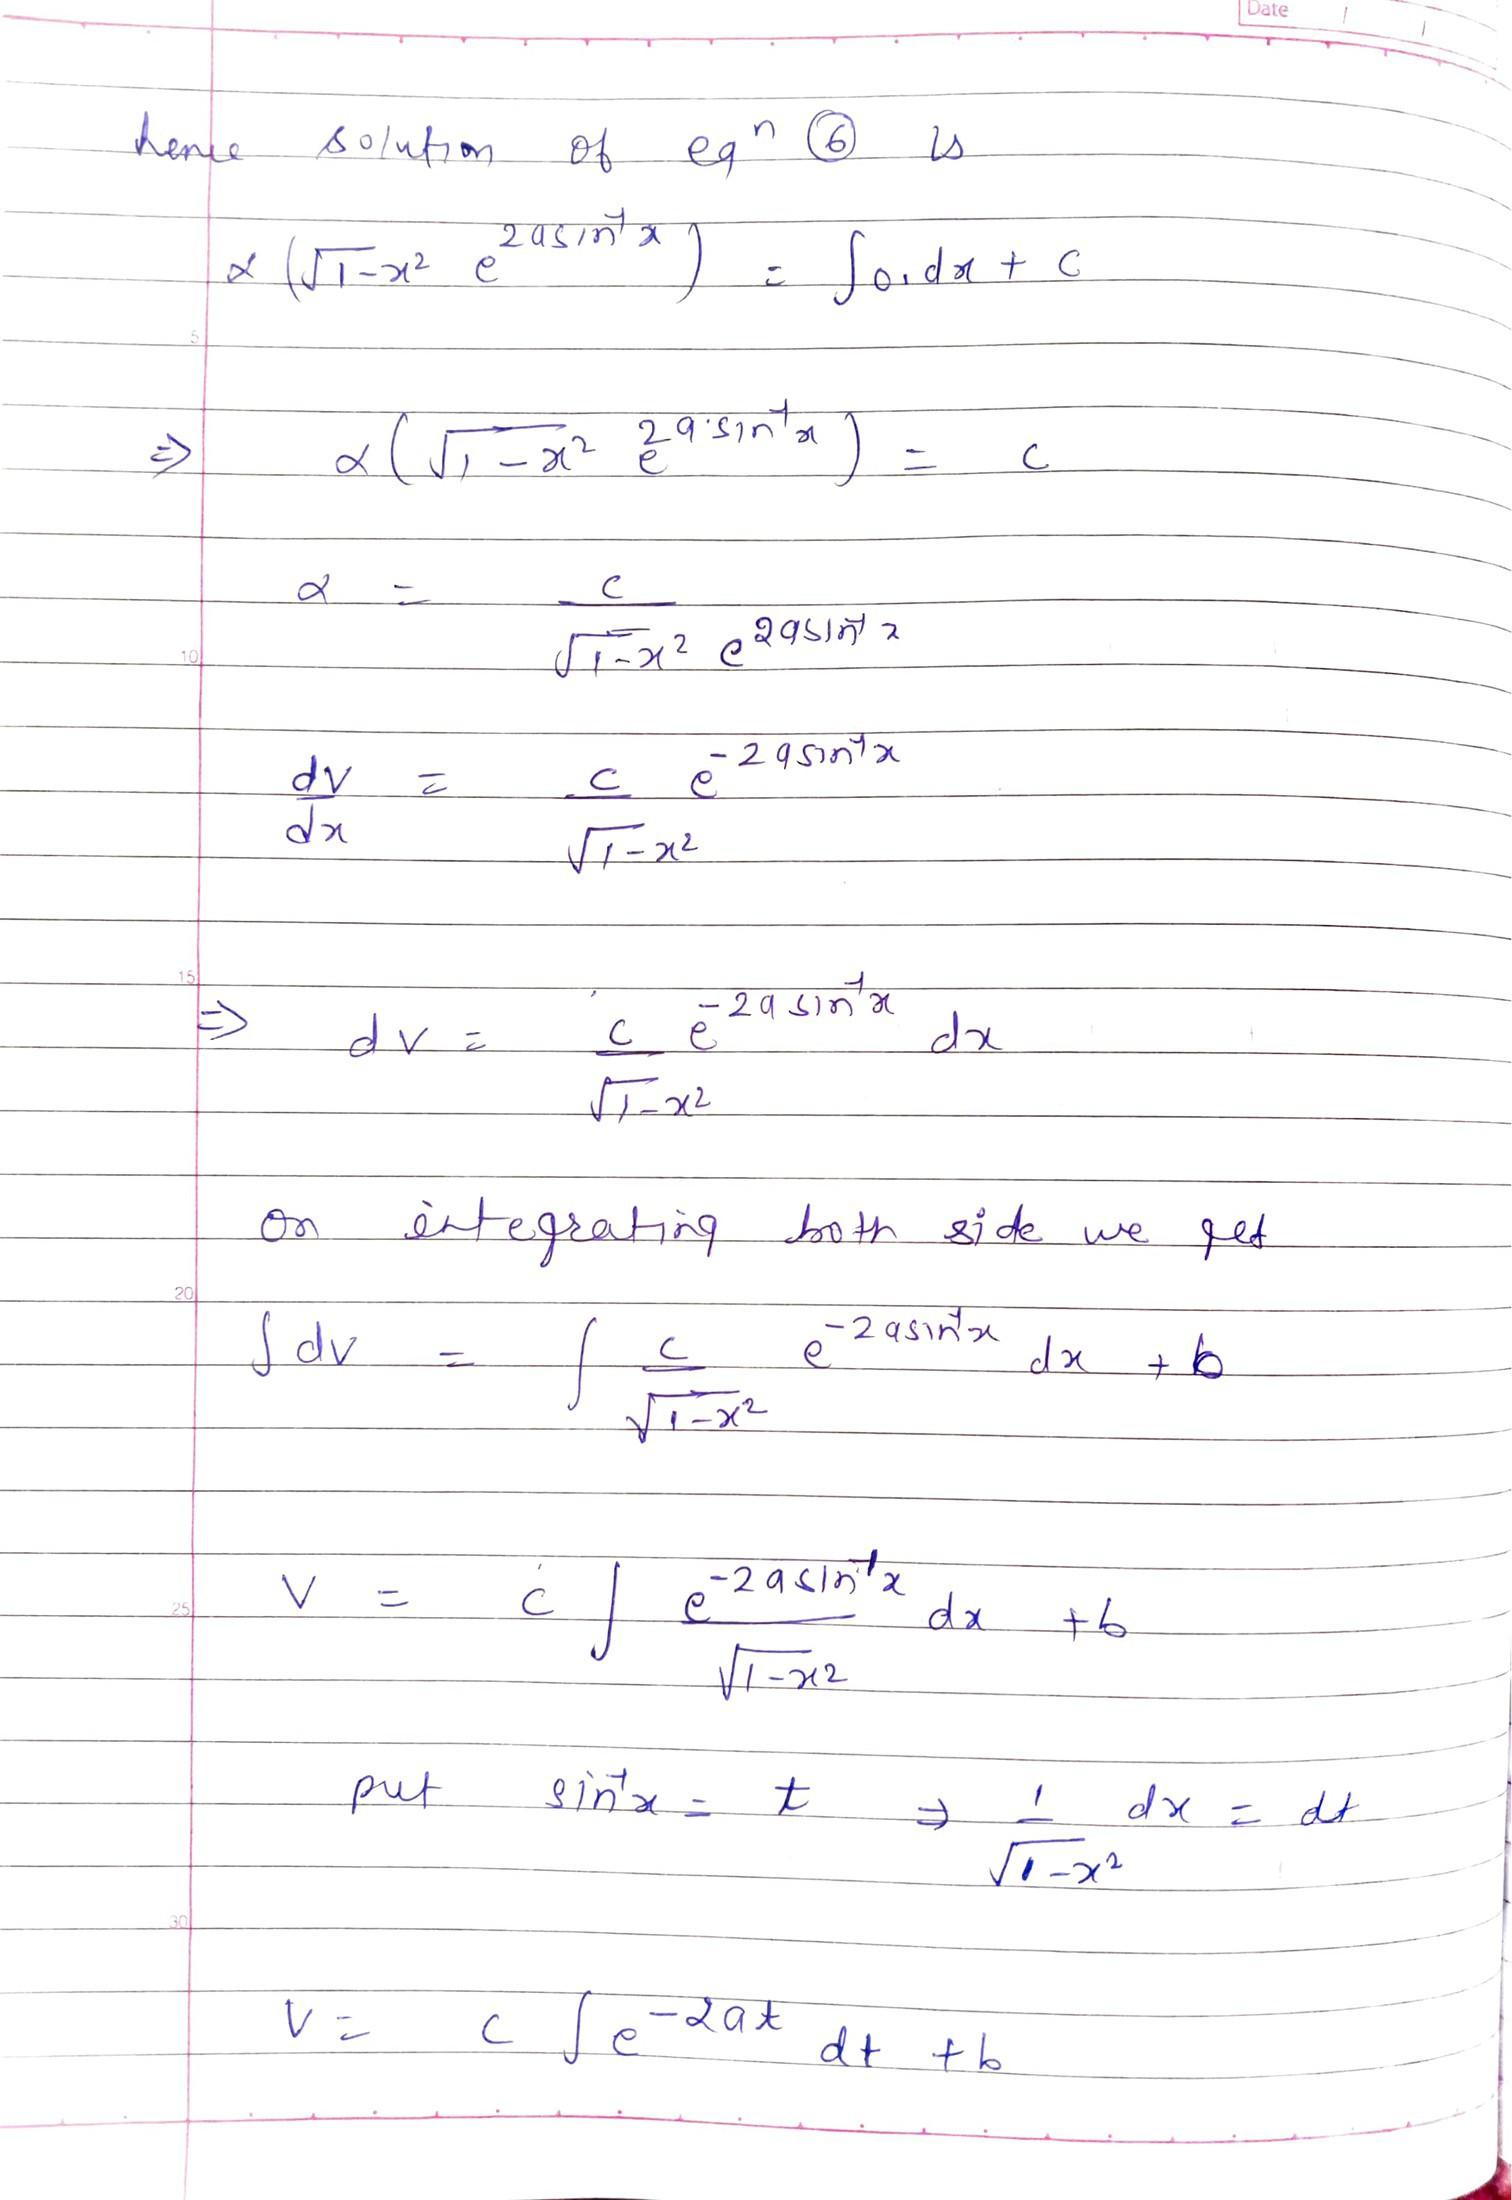 Date
hence solution of eqⁿ ⑥ is
α (√1-x² e^{2a sin⁻¹x}) = ∫0.dx + c
5
⇒ α (√1-x² e^{2a sin⁻¹x}) = c
α = c / √1-x² e^{2a sin⁻¹x}
10
dv/dx = c/√1-x² e^{-2a sin⁻¹x}
15
⇒ dv = c/√1-x² e^{-2a sin⁻¹x} dx
on integrating both side we get
20
∫dv = ∫ c/√1-x² e^{-2a sin⁻¹x} dx + b
V = c ∫ e^{-2a sin⁻¹x}/√1-x² dx + b
25
put sin⁻¹x = t ⇒ 1/√1-x² dx = dt
30
V = c ∫ e^{-2at} dt + b